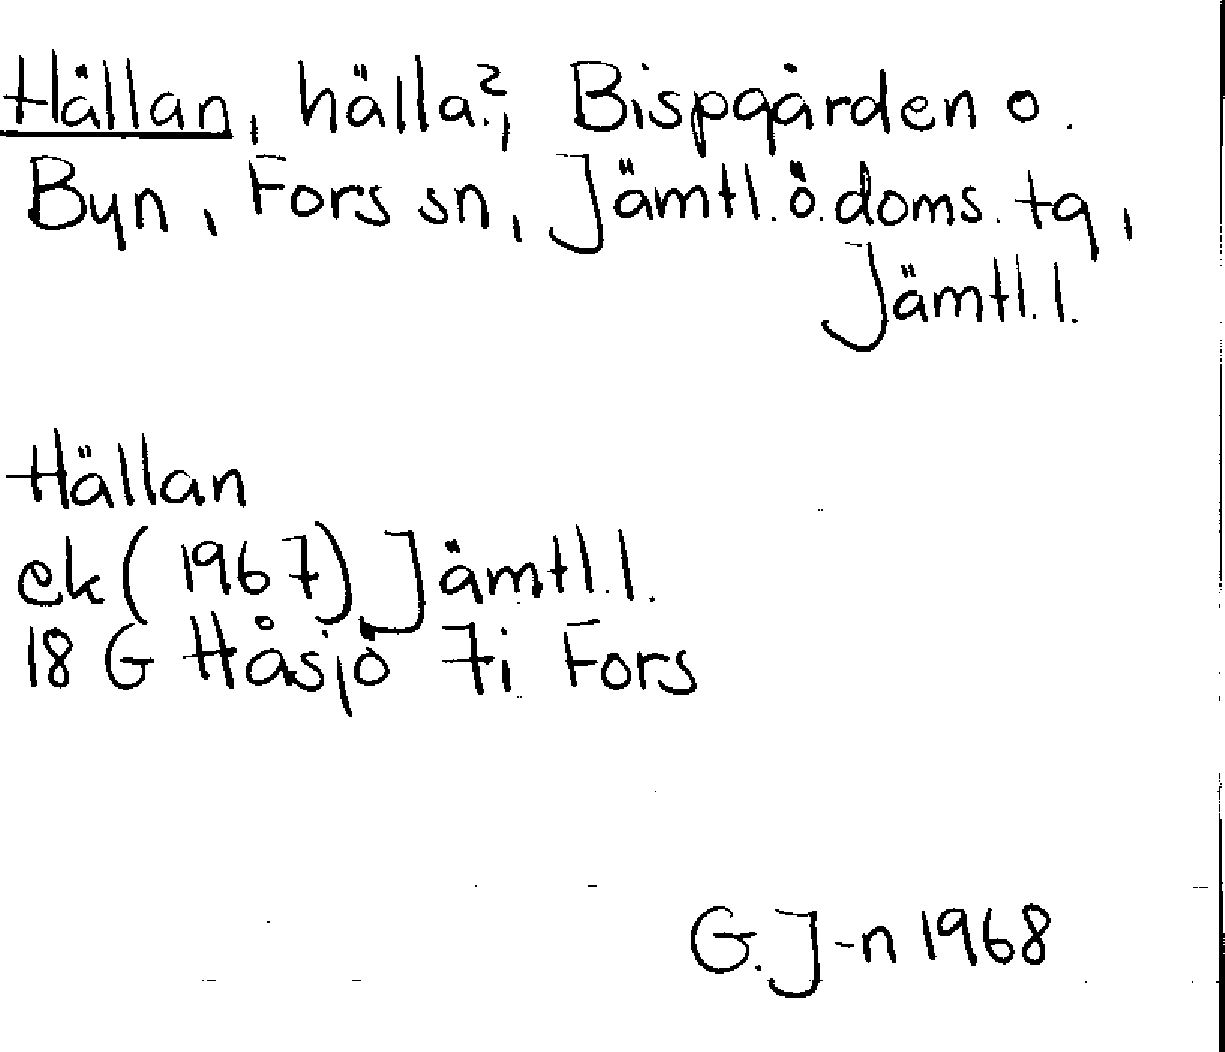 Hällan, hälla?, Bispgården o.
Byn, Fors sn, Jämtl.ö.doms.tg,
Jämtl.l.
Hällan
ek (1967) Jämtl.l.
18 G Håsjö 7i Fors
G.J-n 1968